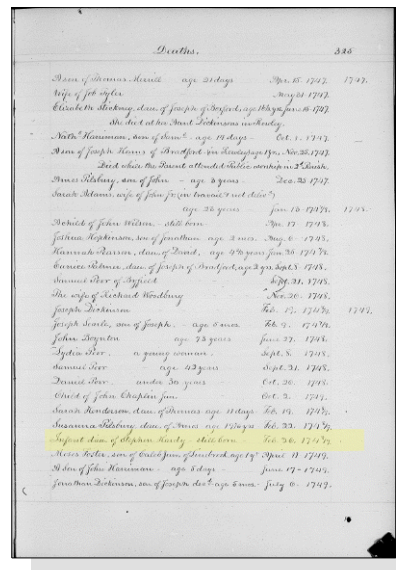 Deaths. 325
A son of Thomas Merrill age 21 days Apr. 15. 1747. 1747.
Wife of Job Tyler May 21. 1747.
Elizabeth Stickney, dau. of Joseph of Boxford, age June 15. 1747.
She died at her Aunt Dickinsons in Rowley.
Nath<sup>l</sup> Harriman, son of Sam<sup>l</sup> - age 19 days - Oct. 1. 1747.
A son of Joseph Hams of Bradford - in Nov. 23. 1747.
Died while the Parent attended Public worship in 2<sup>d</sup> Parish.
Amos Pilsbury, son of John - age 3 years - Dec. 23 1747.
Sarah Adams, wife of John Jr. (in travail & not deliv<sup>d</sup>)
age 26 years - Jan. 15. 174 1748.
A child of John Wilson - still born - Apr. 17 1748.
Joshua Hopkinson, son of Jonathan age 2 mos. Aug. 6 - 1748.
Hannah Pearson, dau. of David, age
Eunice Palmer, dau. of Joseph of Bradford, age 2 yrs. Sept. 3 1748.
Samuel Poor of Byfield Sept. 21. 1748.
The wife of Richard Woodbury Nov. 20. 1748.
Joseph Dickinson Feb. 17. 174 1749.
Joseph Searle, son of Joseph - age 5 mos. Feb. 2. 174
John Boynton age 73 years June 27. 1748.
Lydia Poor. a young woman. Sept. 8. 1748.
Samuel Poor - age 42 years - Sept. 21. 1748.
Daniel Poor. under 30 years - Oct. 26. 1748.
Child of John Chaplin Jun. Oct. 2. 1749.
Sarah Henderson, dau. of Thomas age 11 days Feb. 19. 174
Susanna Pilsbury, dau. of Amos age Feb. 22. 174
Infant dau. of Stephen Hardy - still born - Feb. 26. 174
Moses Foster, son of Caleb Jun. of age April 11 1749.
A son of John Harriman - age 5 days - June 17 - 1749.
Jonathan Dickinson, son of Joseph dec<sup>d</sup> - age 5 mos. - July 6. 1749.